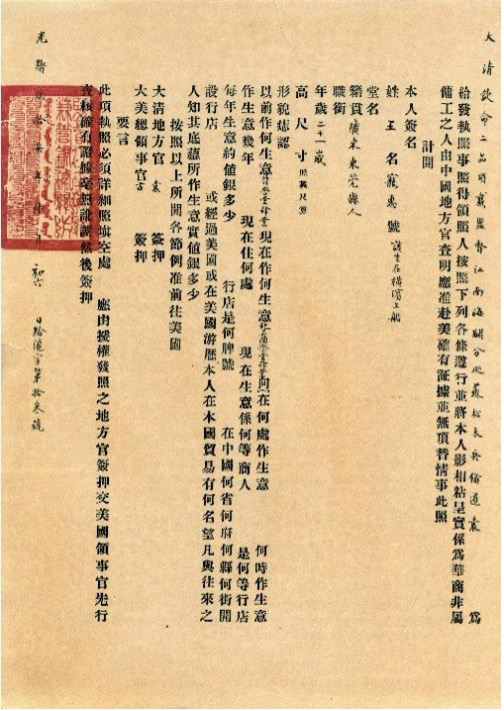 大清欽命二品頂戴監督江南海關分巡蘇松太兵備道袁 為
給發執照事照得領照人按照下列各條遵行並將本人影相粘呈實係為華商非屬
傭工之人由中國地方官查明應准赴美確有証據並無頂替情事此照
計開
本人簽名
姓 王 名 寵惠 號 該生在橫濱上船
堂名
籍貫 廣東東莞縣人
職銜
年歲 二十一歲
高 尺 寸 照碼尺算
形貌痣認
以前作何生意 現在作何生意 向在何處作生意 何時作生意
作生意幾年 現在住何處 現在生意係何等商人 是何等行店
每年生意約値銀多少 行店是何牌號 在中國何省何府何縣何街開
設行店 或經過美國或在美國游歷本人在本國貿易有何名望凡與往來之
人知其底蘊所作生意實值銀多少
按照以上所開各節例准前往美國
大清地方官 袁 簽押
大美領事官古 簽押
要言
此項執照必須詳細照填空處 應由授權發照之地方官簽押交美國領事官先行
查核確有證據毫無訛誤然後簽押
光緒 年 月 初六 日 字第拾叁號